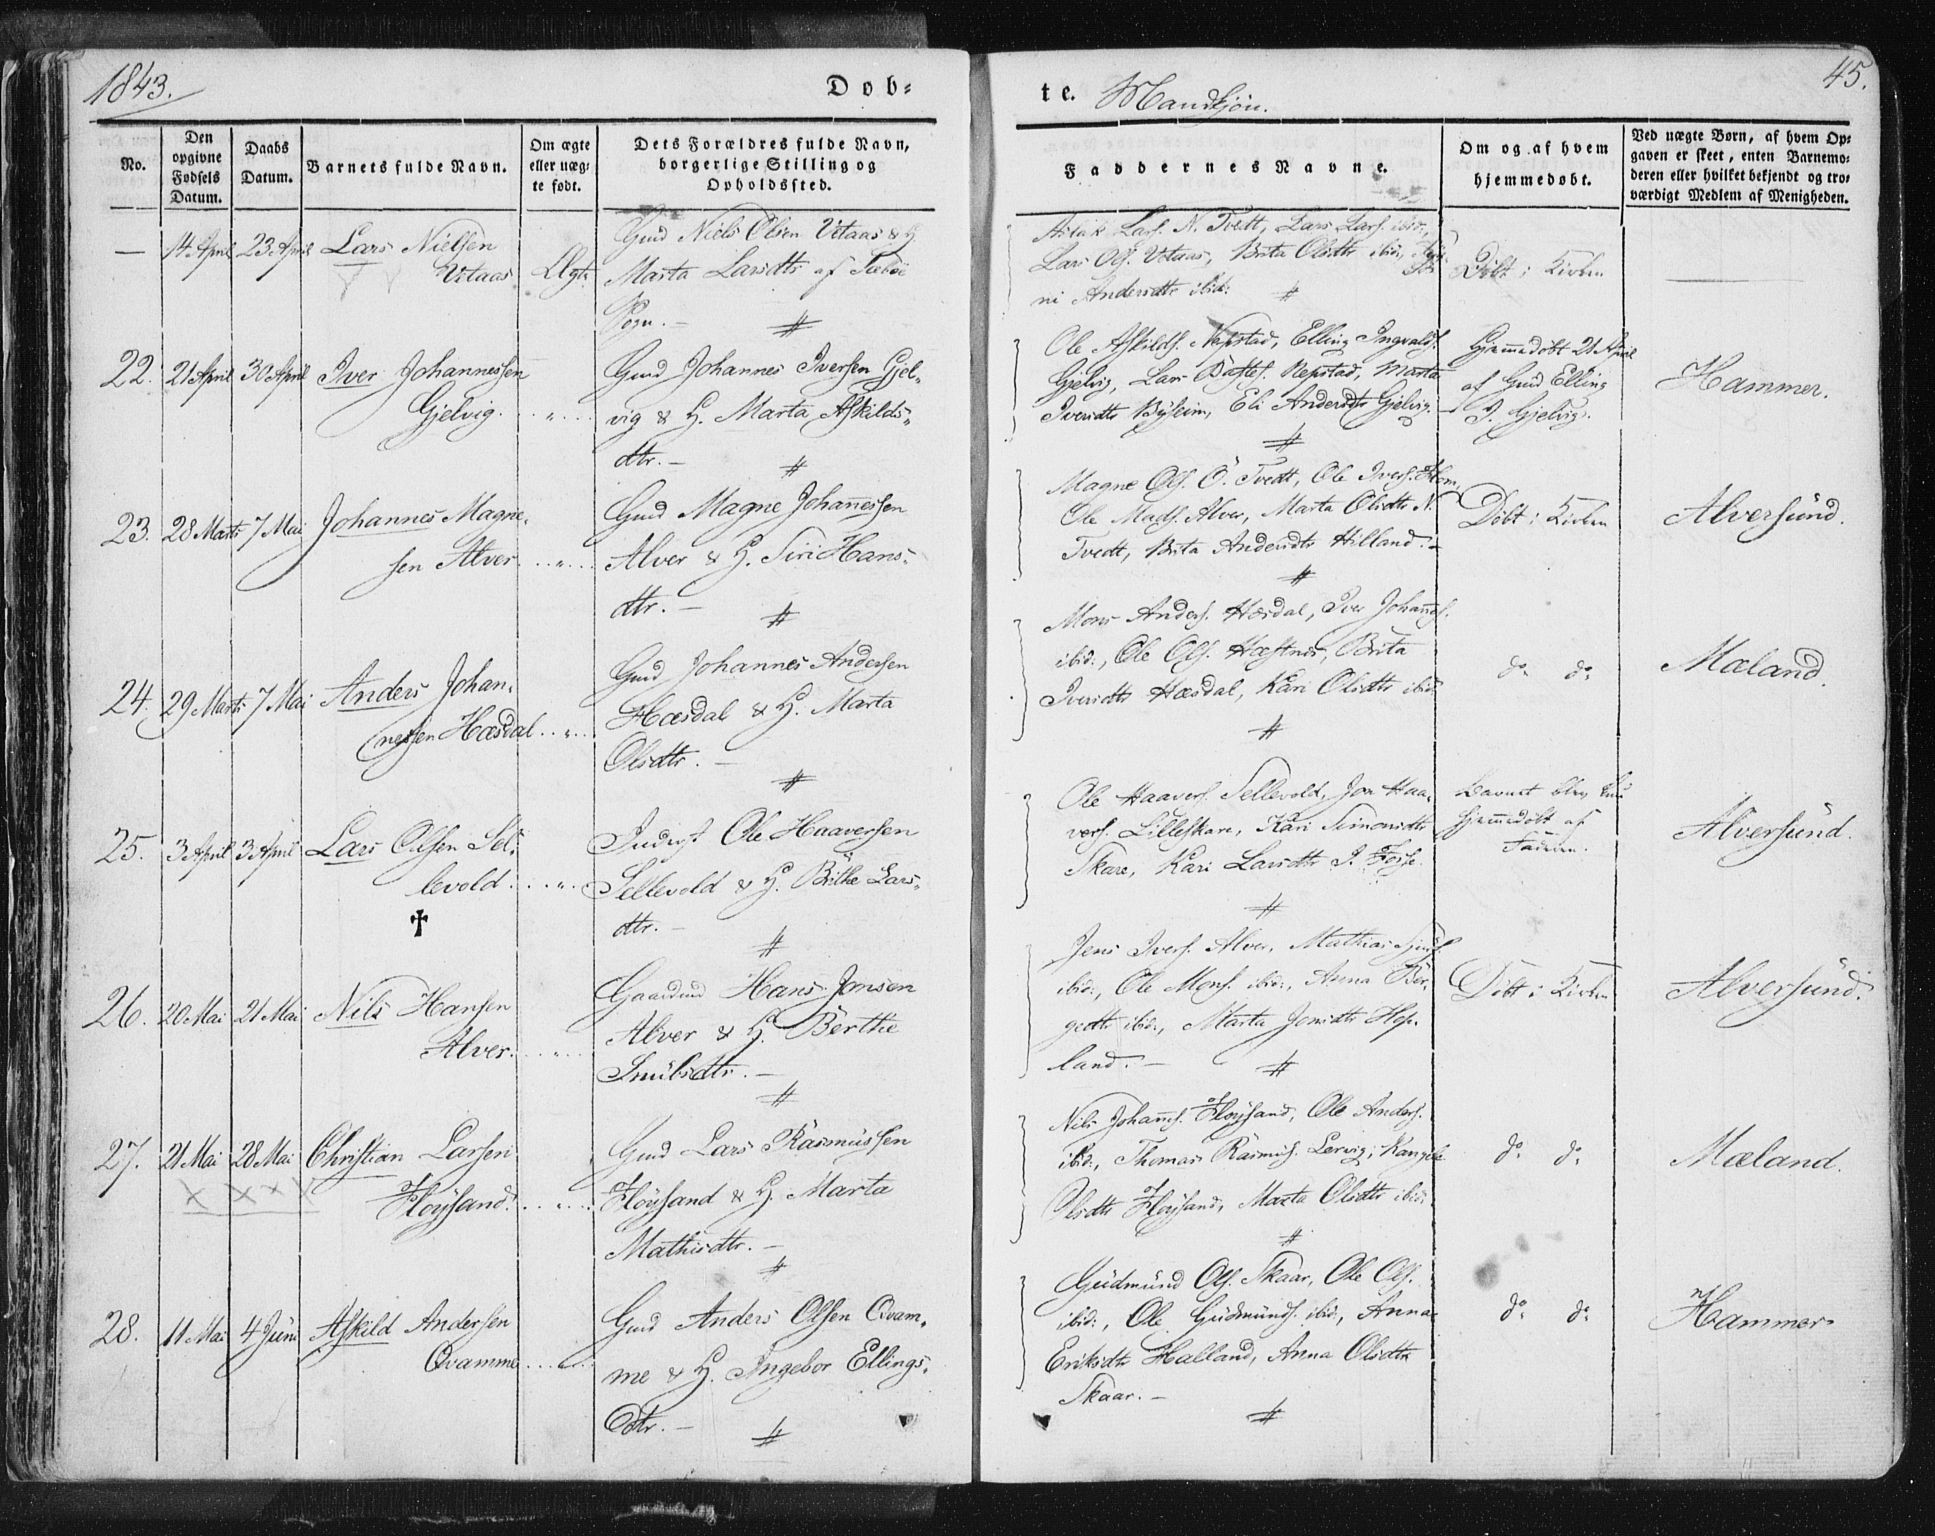 1843.
Døb-
No.
Den opgivne Fødsels Datum.
Daabs Datum.
Barnets fulde Navn.
Om ægte eller uægte født.
Dets Forældres fulde Navn, borgerlige Stilling og Opholdssted.
— 14 April 23 April Lars Nielsen
Vetaas Ægte
Gmd Niels Olsen Vetaas & H
Marta Larsdtr af Sæbøe
Sogn. —
22. 21 April 30 April Iver Johannessen
Gjelvig. . . „ . .
Gmd Johannes Iversen Gjel-
vig & H. Marta Askilds-
dtr. —
23. 28 Marts 7 Mai Johannes Magne-
sen Alver. . . „ . .
Gmd Magne Johanessen
Alver & H. Siri Hans-
dtr. —
24. 29 Marts 7 Mai Anders Johan-
nessen Hæsdal . . „ . .
Gmd Johannes Andersen
Hæsdal & H. Marta
Olsdtr. —
25. 3 April 3 April Lars Olsen Sel-
levold . . . „ . .
†
Inderst Ole Haaversen
Sellevold & H. Brithe Lars-
dtr. —
26. 20 Mai 21 Mai Nils Hansen
Alver. . . „ . .
Gaardmd Hans Jonsen
Alver & H. Berthe
dtr. —
27. 21 Mai 28 Mai Christian Larsen
x x x x
Fløysand. . . „ . .
Gmd Lars Rasmussen
Fløysand & H. Marta
Mathisdtr. —
28. 11 Mai 4 Juni Askild Andersen
Qvamme . . „ . .
Gmd Anders Olsen Qvam-
me & H. Ingebor Ellings-
Dtr. —
te. Mandkjøn.
45.
Faddernes Navne.
Om og af hvem hjemmedøbt.
Ved uægte Børn, af hvem Op-
gaven er skeet, enten Barnemo-
deren eller hvilket bekjendt og tro-
værdigt Medlem af Menigheden.
Aslak Lars. N. Tvedt, Lars Lars. ibid.,
Lars Ols. Vetaas, Brita Olsdtr ibid.,
Andersdtr ibid:
Døbt i Kirken
Ole Askilds. Nepstad, Elling Ingvalds.
Gjelvig, Lars Nepstad, Marta
Iversdtr Byheim, Eli Andersdtr Gjelvig.
Hjemmedøbt 21 April
af Gmd Elling
I. Gjelvig.
Hammer.
Magne Ols. Ö. Tvedt, Ole Ivers.
Ole Mads. Alver, Marta Olsdtr N.
Tvedt, Brita Andersdtr Hilland. —
Døbt i Kirken
Alversund.
Mons Anders. Hæsdal, Iver Johanes.
ibid:, Ole Ols. Hæstnes, Brita
Iversdtr Hæsdal, Kari Olsdtr ibid:
do do
Mæland.
Ole Haavers. Sellevold, Jon Haa-
vers. Lilleskare, Kari Simonsdtr
Skare, Kari Larsdtr I. Fosse.
Barnet blev kun
Hjemmedøbt af
Faderen.
Alversund.
Jens Ivers. Alver, Mathias
ibid:, Ole Mons. ibid:, Anna Bør-
gedtr ibid:, Marta Jonsdtr Hop-
land. —
Døbt i Kirken
Alversund.
Nils Johans. Fløysand, Ole Anders.
ibid:, Thomas Rasmus. Lervig,
Olsdtr Fløysand, Marta Olsdtr ibid:
do do
Mæland.
Gudmund Ols. Skaar, Ole Ols.
ibid:, Ole Gudmunds. ibid:, Anna
Eriksdtr Halland, Anna Olsdtr
Skaar. —
do do
Hammer